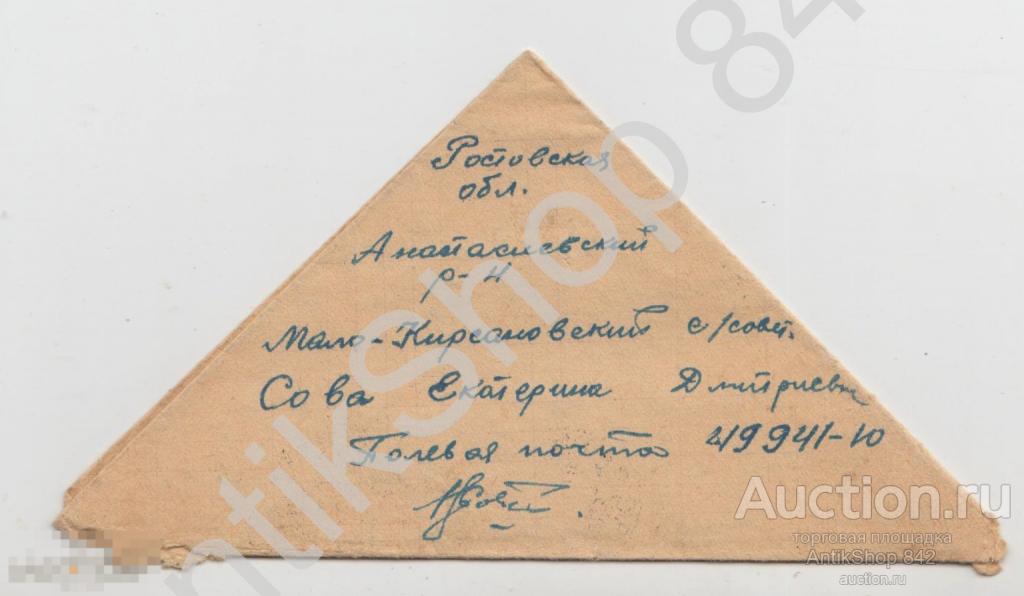 Ростовская
обл.
Анастасиевский
р-н
Мало-Кирсановский с/совет.
Сова Екатерина Дмитриевне
Полевая почта 49941-Ю
AntikShop 842
Auction.ru
торговая площадка
AntikShop 842
auction.ru